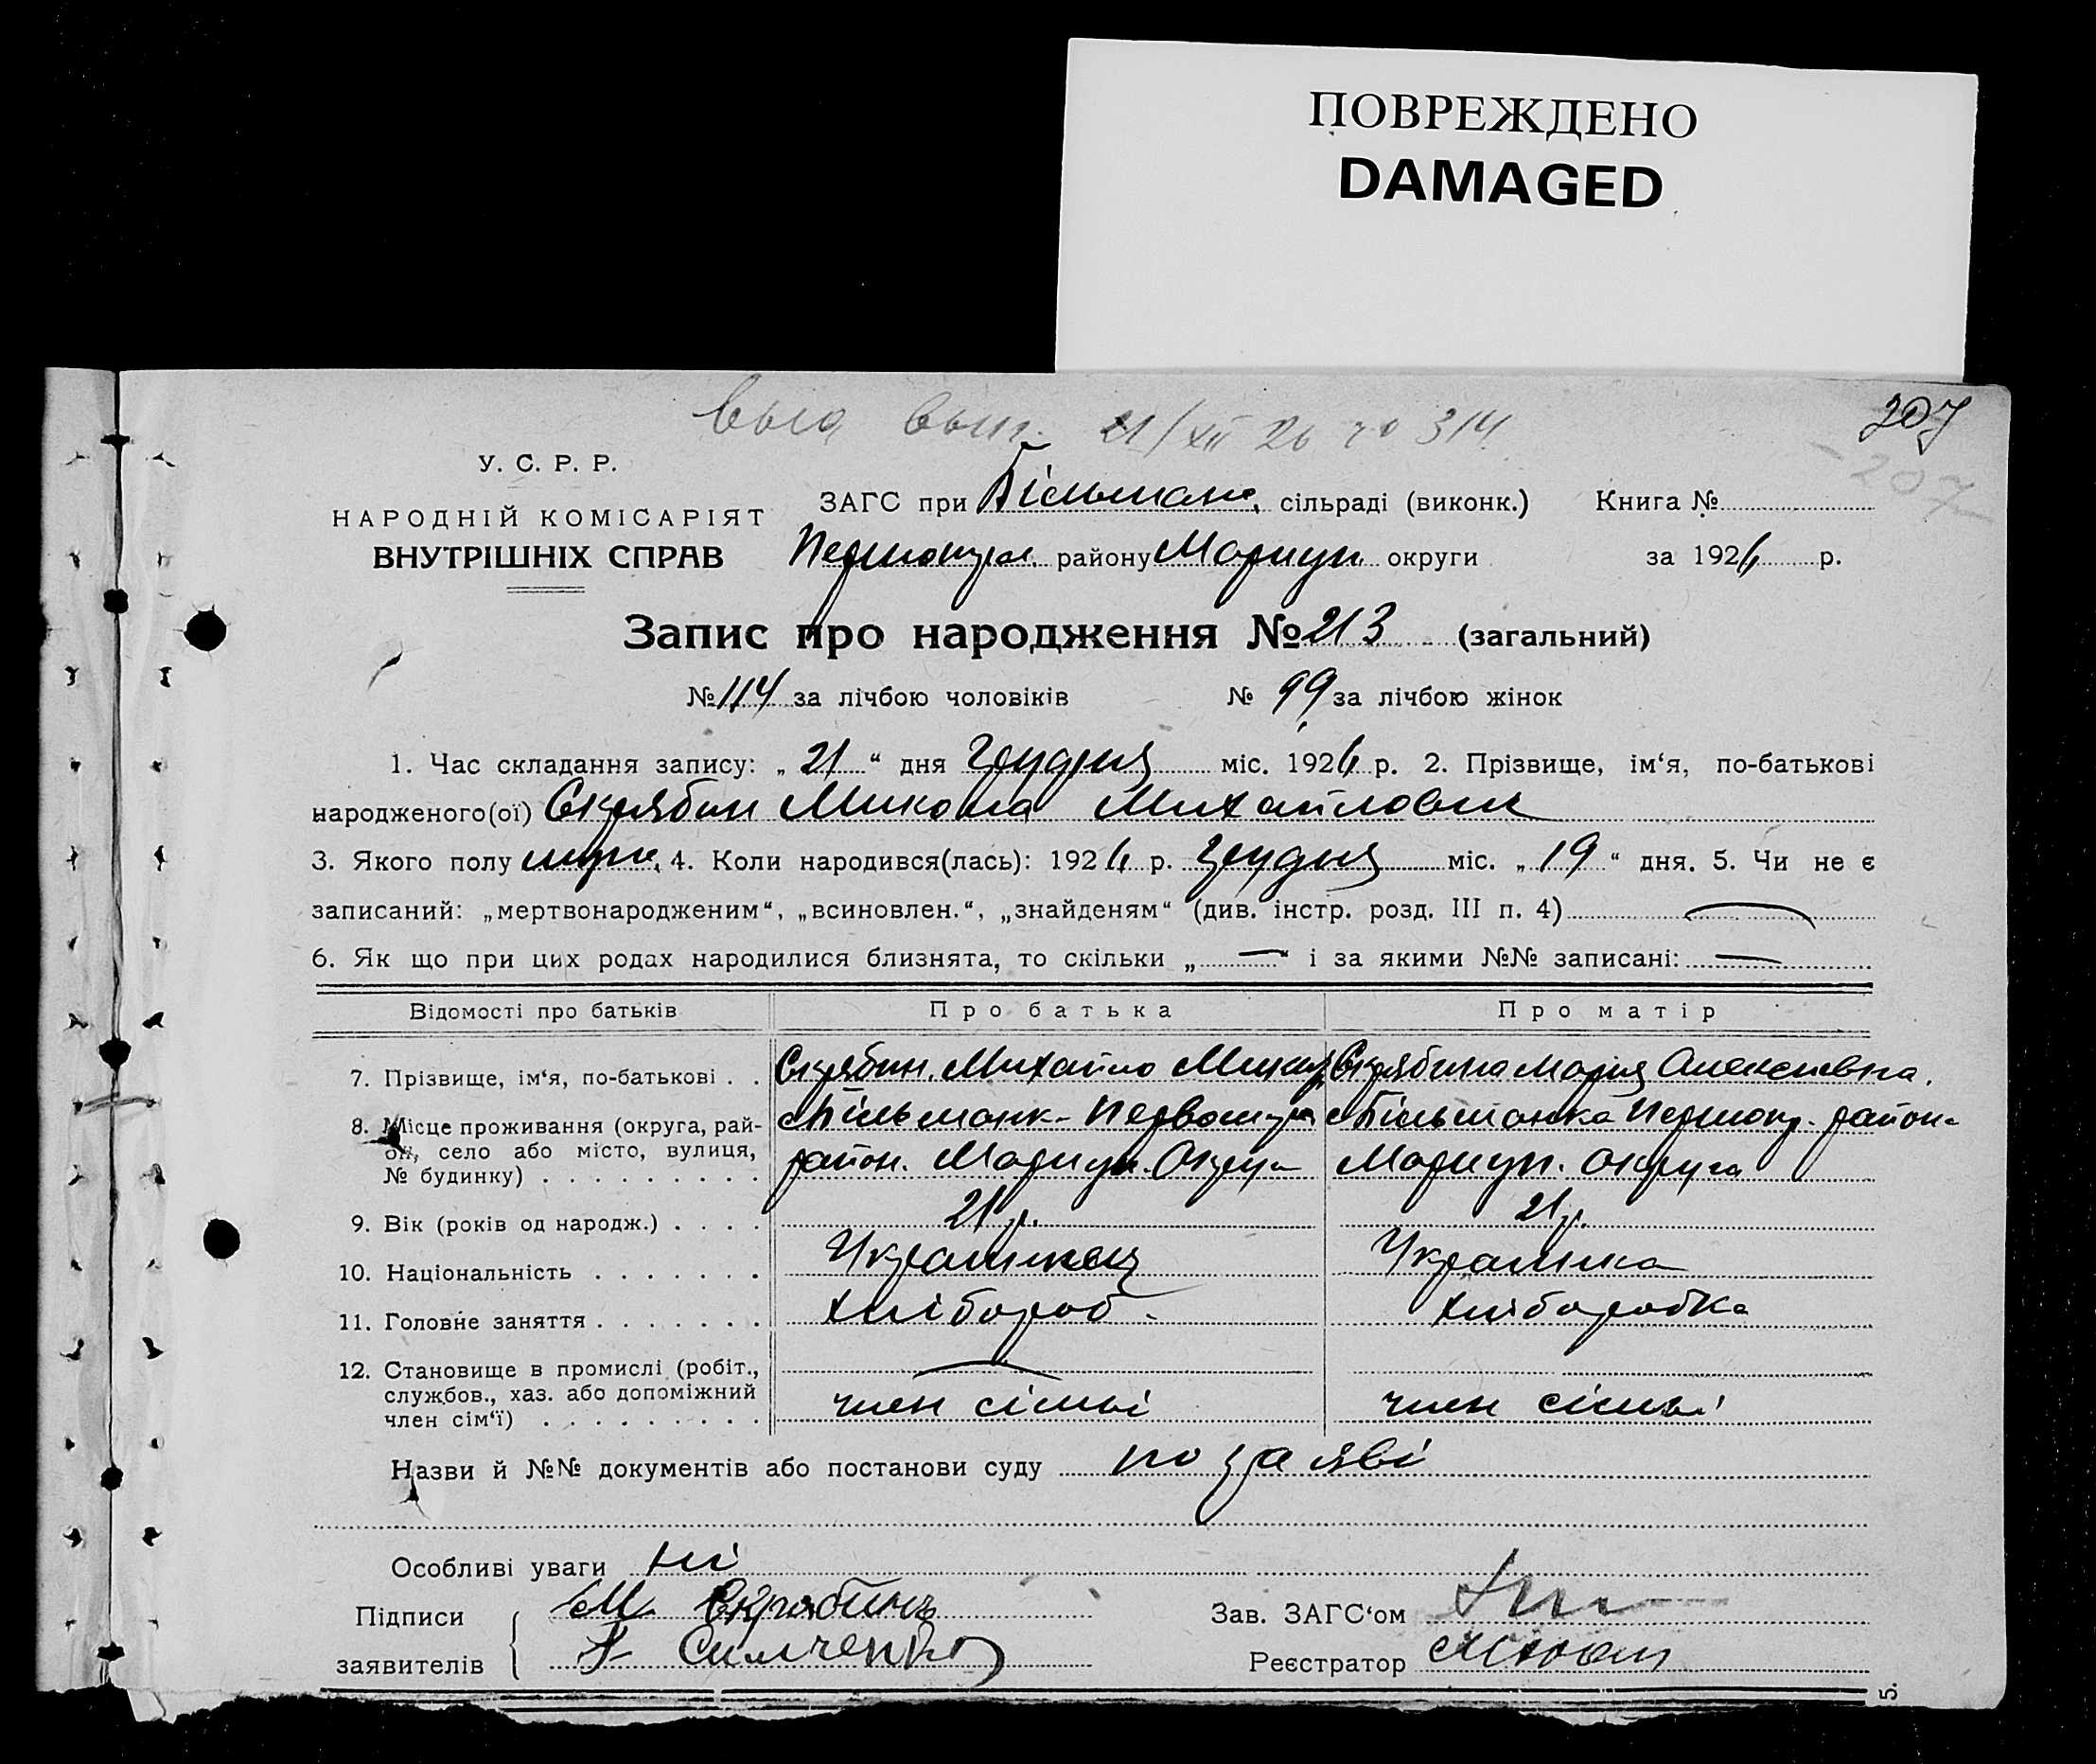 ПОВРЕЖДЕНО
DAMAGED
207
21/XII 26 № 314
207
У. С. Р. Р.
НАРОДНІЙ КОМІСАРІЯТ
ВНУТРІШНІХ СПРАВ
ЗАГС при Більман. сільраді (виконк.) Книга №
Першопра. району Мариуп. округи за 1926 р.
Запис про народження № 213 (загальний)
№ 114 за лічбою чоловіків № 99 за лічбою жінок
1. Час складання запису: „ 21 “ дня Грудня міс. 1926 р. 2. Прізвище, ім‘я, по-батькові
народженого(ої) Скрябин Микола Михайлович
3. Якого полу муж. 4. Коли народився(лась): 1926 р. Грудня міс. „ 19 “ дня. 5. Чи не є
записаний: „мертвонародженим“, „всиновлен.“, „знайденям“ (див. інстр. розд. III п. 4)
6. Як що при цих родах народилися близнята, то скільки „ — “ і за якими №№ записані: —
Відомості про батьків Про батька Про матір
7. Прізвище, ім‘я, по-батькові . . Скрябин. Михайло Микол. Скрябина Мария Алексиевна.
8. Місце проживання (округа, рай-
он, село або місто, вулиця,
№ будинку) . . . . . . . . .
с Більманк- район. Мариуп. Округ
с Більманка Першопр. район-
Мариуп. округа
9. Вік (років од народж.) . . . . 21 р. 21 р.
10. Національність . . . . . . . Украинец Украинка
11. Головне заняття . . . . . . . Хлібороб. Хлiборобка
12. Становище в промислі (робіт.,
службов., хаз. або допоміжний
член сім‘ї) . . . . . . . . . член сімьї член сімьї
Назви й №№ документів або постанови суду по заяві
Особливі уваги ні
Підписи М Скрябинъ Зав. ЗАГС‘ом
заявителів Симченко Реєстратор
5.